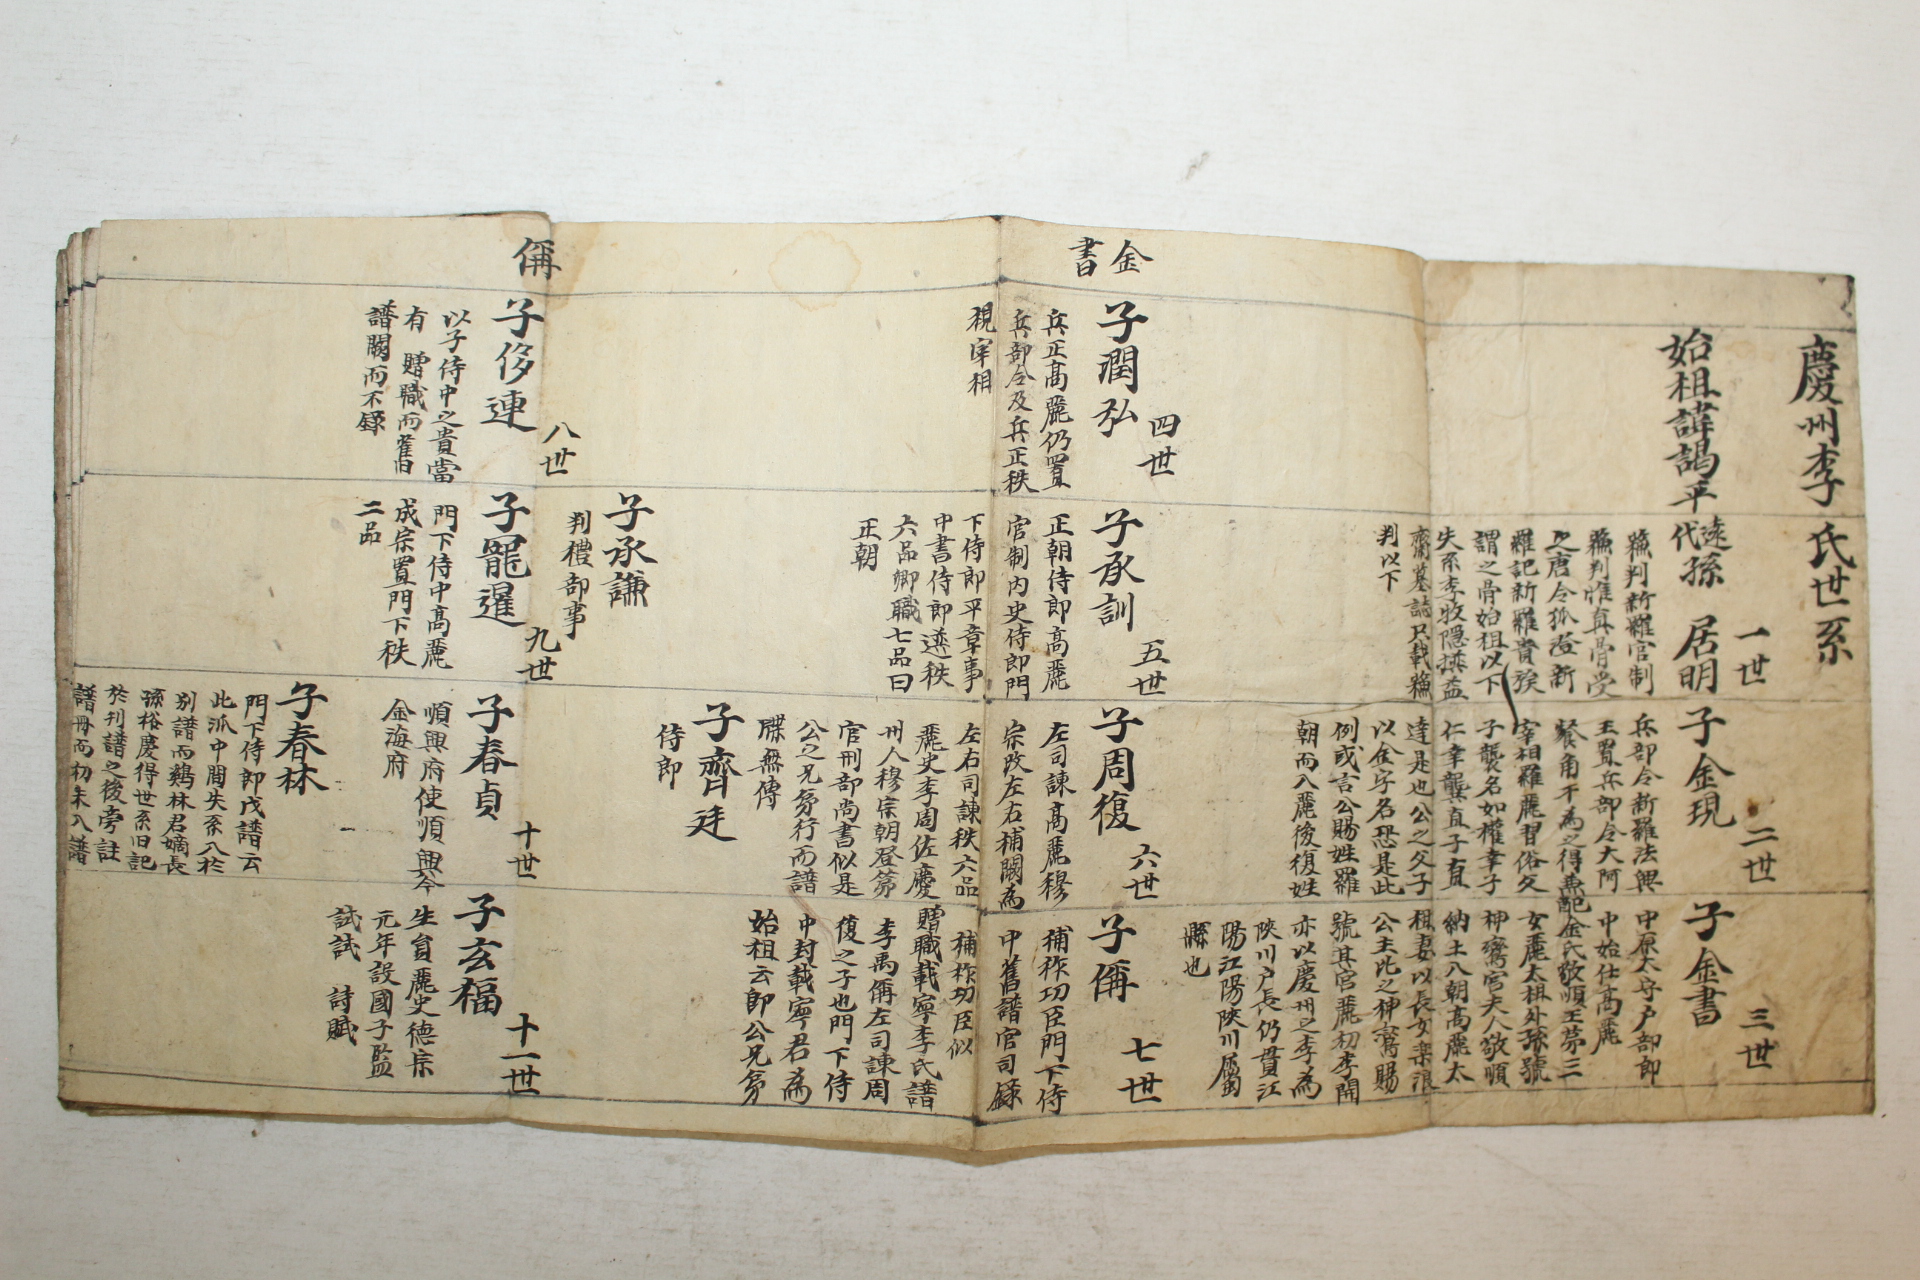 慶州李氏世系
始祖諱謁平
遠代孫
居明
一世
蘓判新羅官制
蘓判惟真骨受
之唐令狐澄新
羅記新羅貴族
謂之骨始祖以下
失系李牧隱撰益
齋墓誌只載蘓
判以下
二世
子金現
兵部令新羅法興
王置兵部令大阿
飡角干為之得兼
宰相羅麗習俗父
子襲名如權幸子
仁幸龔直子直
達是也公之父子
以金字名恐是此
例或言公賜姓羅
朝而入麗後復姓
三世
子金書
中原太守户部郎
中始仕高麗
配金氏敬順王第三
女麗太祖外孫號
神鸞宮夫人敬順
納土入朝高麗太
祖妻以長女樂浪
公主此之神鸞賜
號其宮麗初李開
亦以慶州之李為
陜川户長仍貫江
陽江陽陜川屬
縣也
金書
四世
子潤弘
兵正高麗仍置
兵部令及兵正秩
視宰相
五世
子承訓
正朝侍郎高麗
官制內史侍郎門
下侍郎平章事
中書侍郎遞秩
六品鄉職七品曰
正朝
子承謙
判禮部事
六世
子周復
左司諫高麗穆
宗改左右補闕為
左右司諫秩六品
麗史李周佐慶
州人穆宗朝登第
官刑部尚書似是
公之兄弟行而譜
牒無傳
子齊廷
侍郎
七世
子偁
補祚功臣門下侍
中舊譜官司錄
補祚功臣似
贈職載寧李氏譜
李禹偁左司諫周
復之子也門下侍
中封載寧君為
始祖云郎公兄弟
偁
八世
子侈連
以子侍中之貴當
有 贈職而舊
譜闕而不錄
九世
子寵暹
門下侍中高麗
成宗置門下秩
二品
十世
子春貞
順興府使順興今
金海府
子春林
門下侍郎戊譜云
此派中間失系入於
別譜而鷄林君嫡長
孫裕慶得世系旧記
於刊譜之後旁註
譜冊而初未入譜
十一世
子玄福
生員麗史德宗
元年設國子監
試試 詩賦